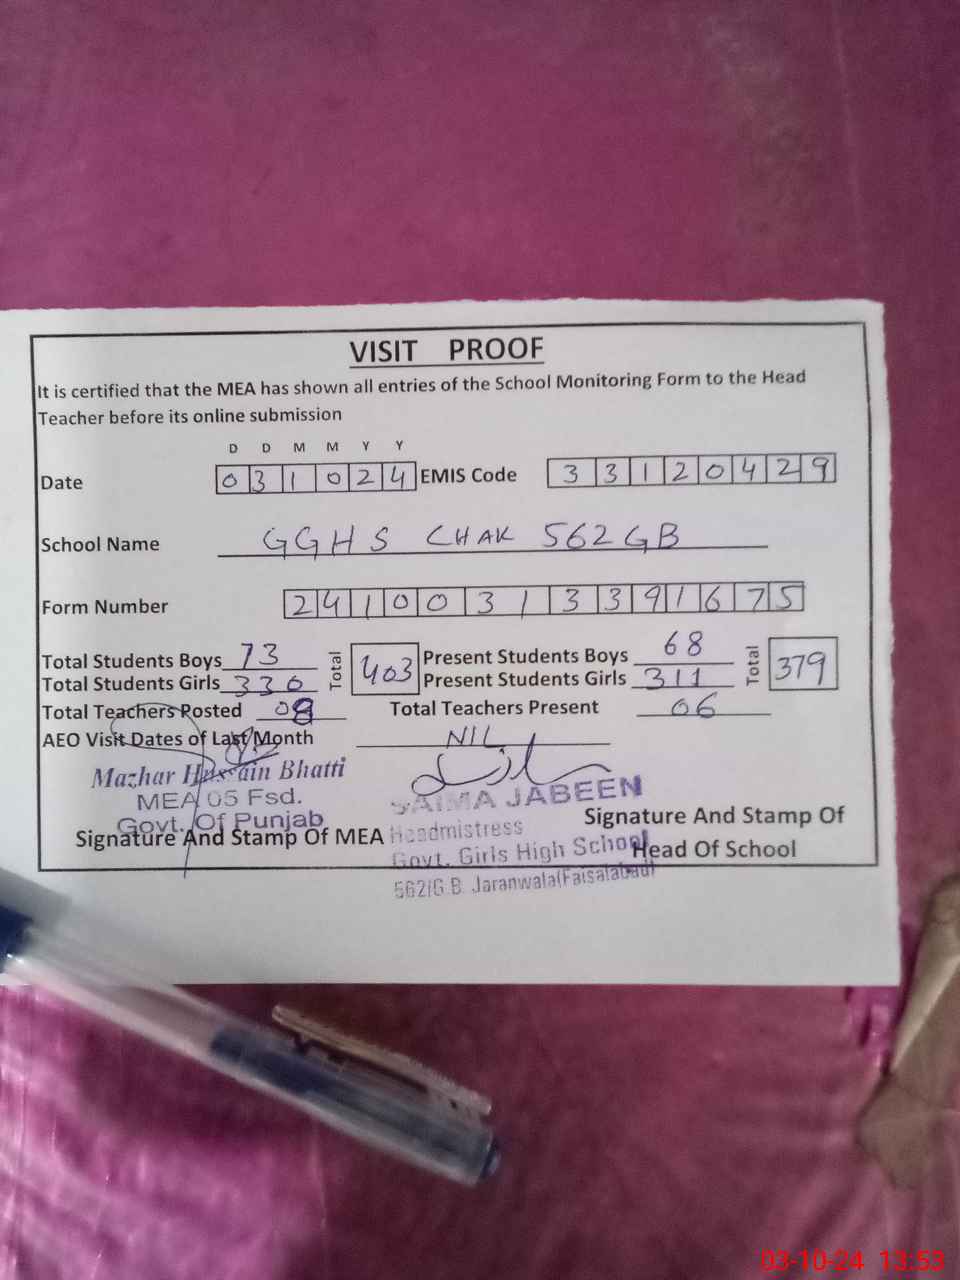 VISIT PROOF
It is certified that the MEA has shown all entries of the School Monitoring Form to the Head
Teacher before its online submission
D D M M Y Y
Date 031024 EMIS Code 33120429
School Name GGHS CHAK 562 GB
Form Number 24100313391675
Total Students Boys 73 Total 403 Present Students Boys 68 Total 379
Total Students Girls 330 Present Students Girls 311
Total Teachers Posted 08 Total Teachers Present 06
AEO Visit Dates of Last Month NIL
Mazhar Hussain Bhatti
MEA 05 Fsd.
Govt. Of Punjab
Signature And Stamp Of MEA
SAIMA JABEEN
Headmistress
Govt. Girls High School
562/G.B. Jaranwala(Faisalabad)
Signature And Stamp Of
Head Of School
03-10-24 13:53